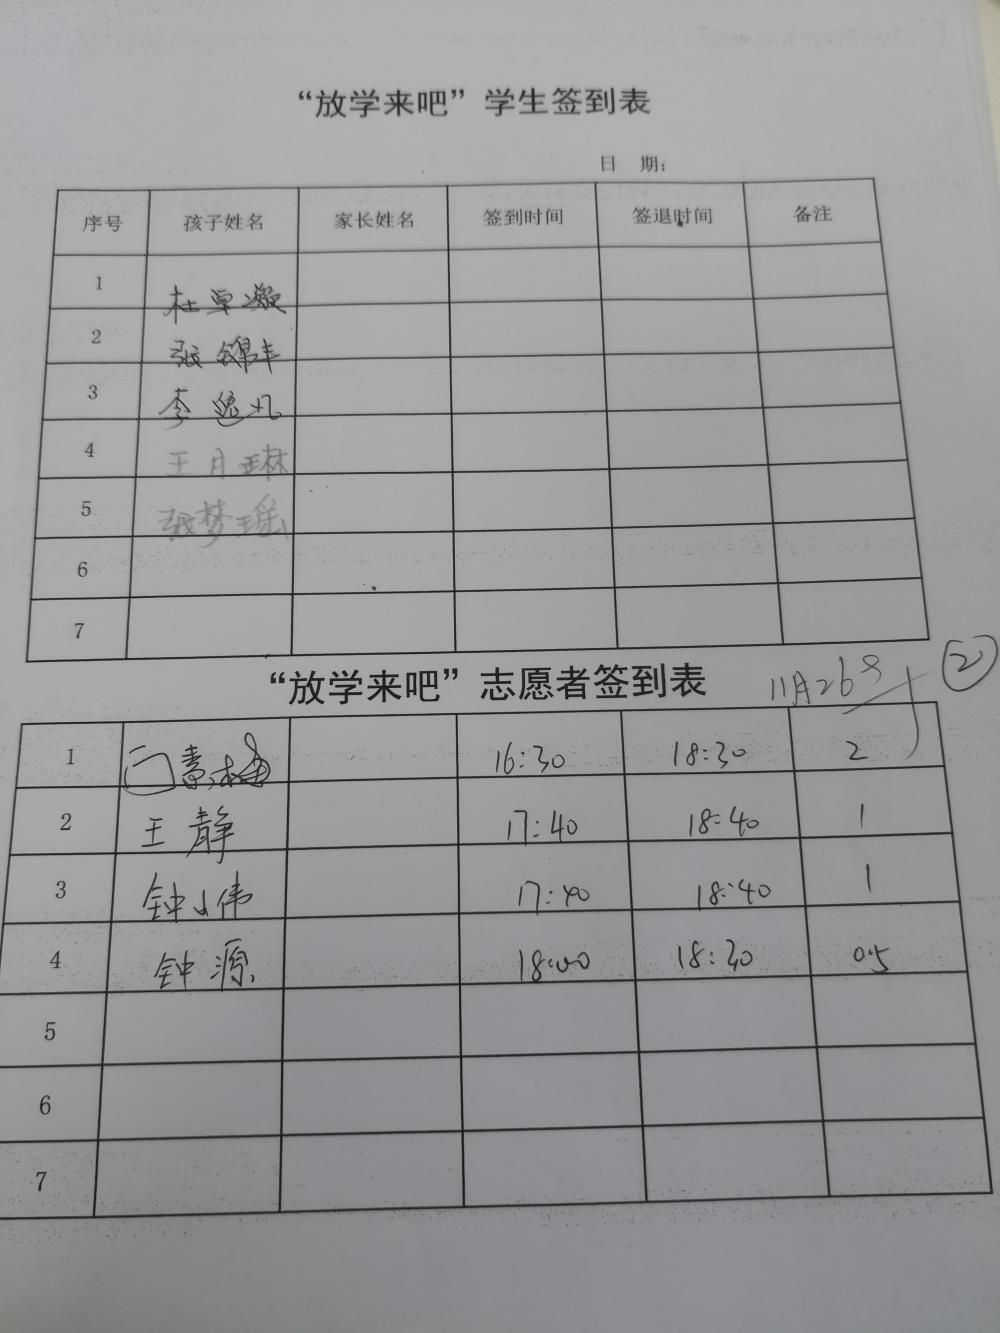 “放学来吧”学生签到表
日 期:
序号 孩子姓名 家长姓名 签到时间 签退时间 备注
1 杜卓凝
2 张锦丰
3 李逸凡
4 王月琳
5 张梦瑶
6
7
“放学来吧”志愿者签到表 11月26号 ②
1 16:30 18:30 2
2 王静 17:40 18:40 1
3 钟小伟 17:40 18:40 1
4 钟源 18:00 18:30 0.5
5
6
7